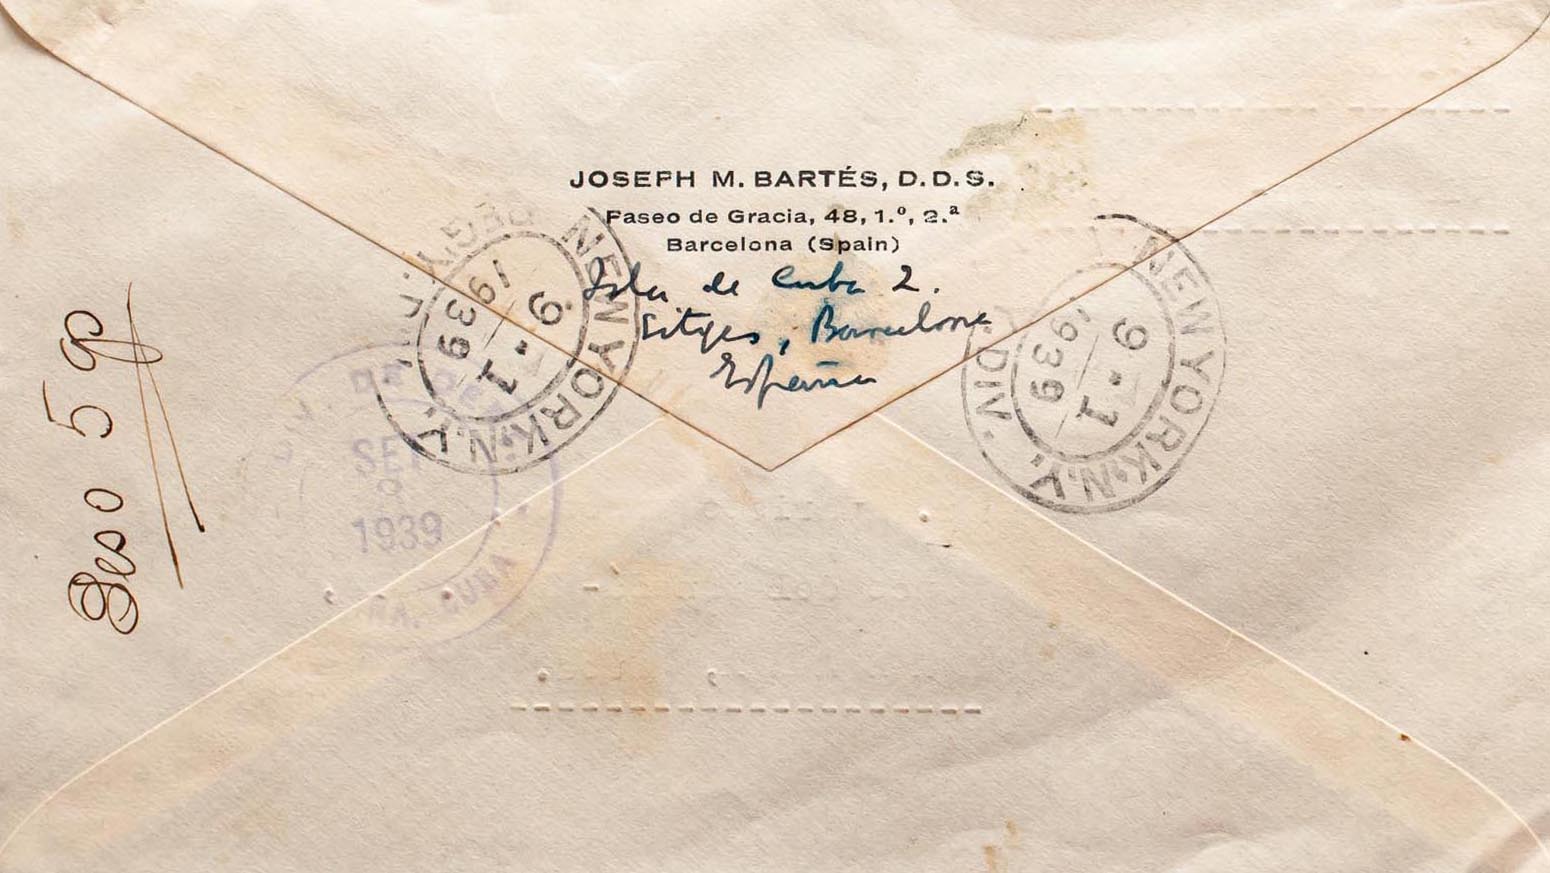 JOSEPH M. BARTÉS, D.D.S.
Paseo de Gracia, 48, 1.º, 2.ª
Barcelona (Spain)
Isla de Cuba 2.
Sitges, Barcelona
España
NEW YORK, N.Y.
9-1
1939
NEW YORK, N.Y.
DIV.
9-1
1939
1939
CUBA
Peso 5 gr